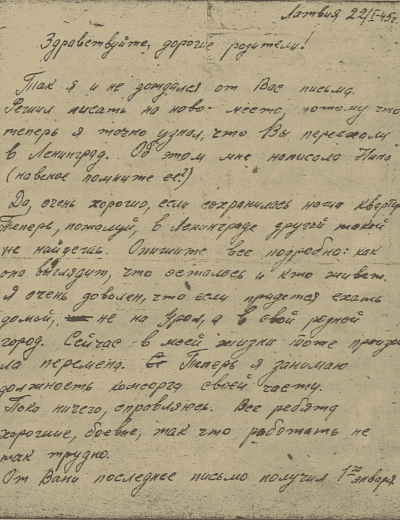 Латвия 22/I-45г.
Здравствуйте, дорогие родители!
Так я и не дождался от Вас письма.
Решил писать на ново- место, потому что
теперь я точно узнал, что Вы переехали
в Ленинград. Об этом мне написала Нина
(навекое помните её?)
Да, очень хорошо, если сохранилась наша кварти
Теперь, пожалуй, в Ленинграде другой такой
не найдешь. Опишите все подробно: как
она выглядит, что осталось и кто живет.
Я очень доволен, что если придется ехать
домой, не на Урал, а в свой родной
город. Сейчас в моей жизни тоже произо
ла перемена. Теперь я занимаю
должность комсорга своей части.
Пока ничего, справляюсь. Все ребята
хорошие, боевые, так что работать не
так трудно.
От Вани последнее письмо получил 1го января